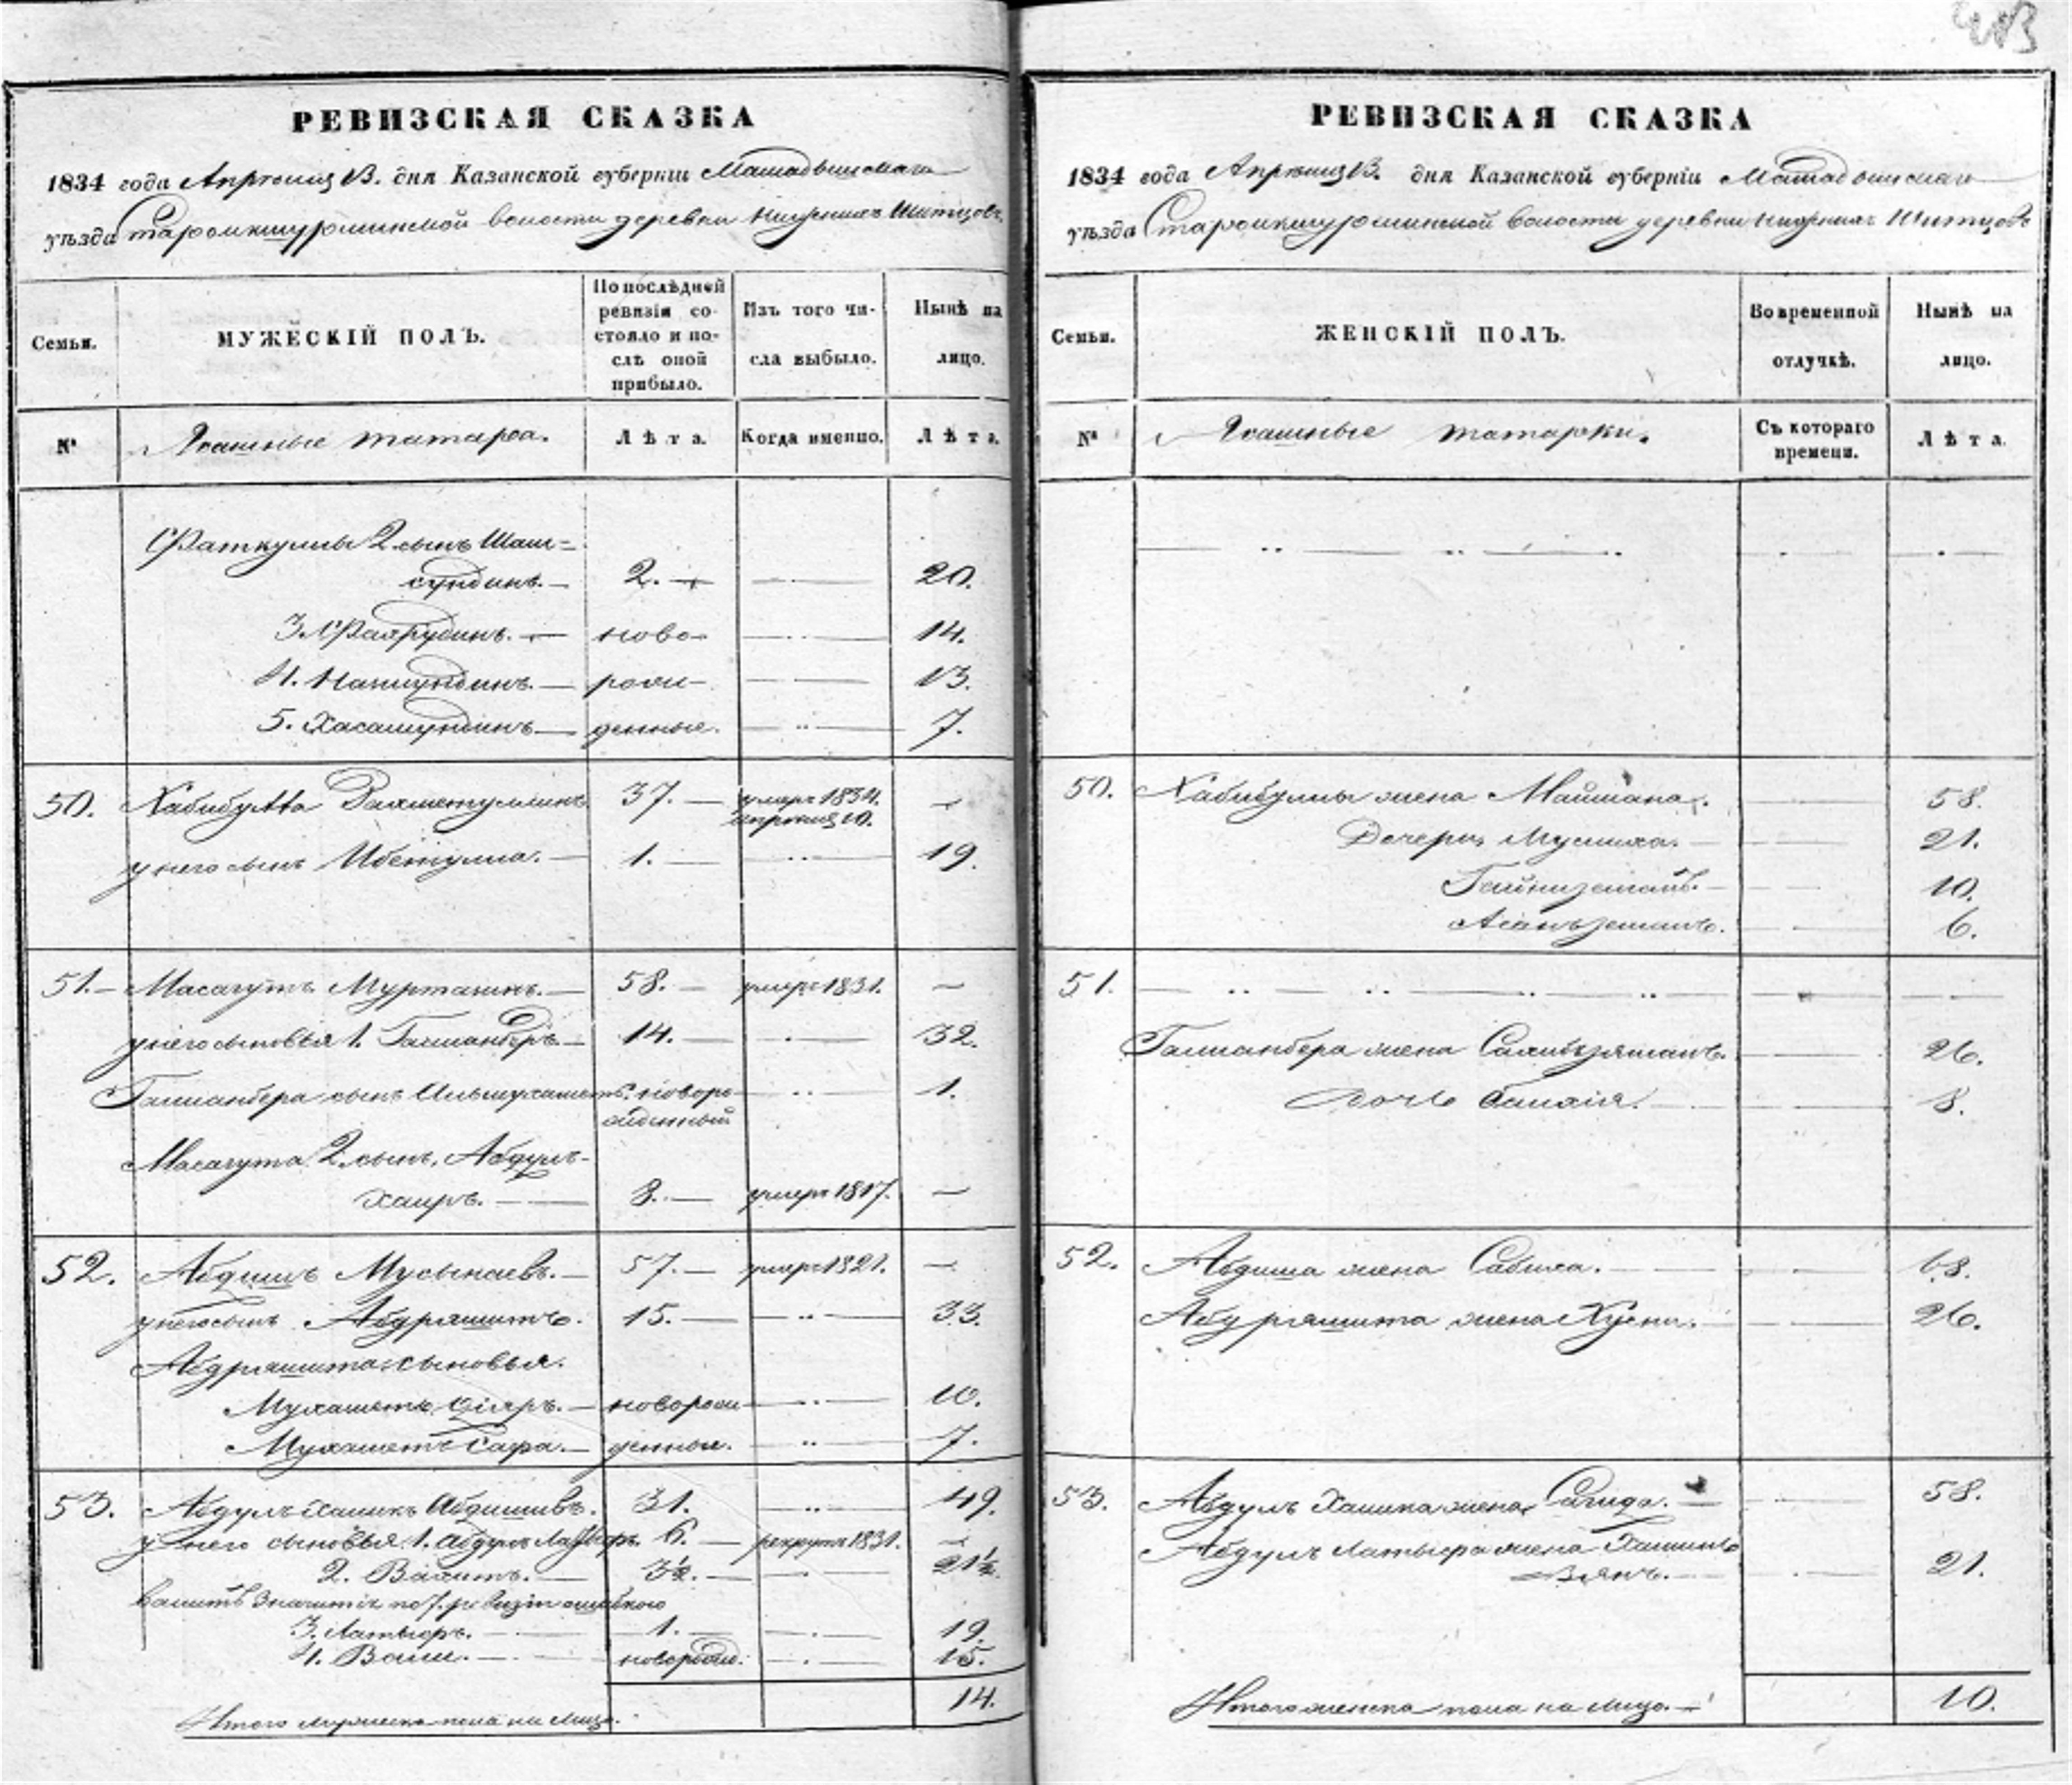 РЕВИЗСКАЯ СКАЗКА
1834 года Апреля 13. дня Казанской губерніи Мамадышскаго
уѣзда Староикшурминской волости деревни Нижнихъ Шитцовъ
Семьи.
МУЖЕСКІЙ ПОЛЪ.
По послѣдней ревизіи состояло и послѣ оной прибыло.
Изъ того числа выбыло.
Нынѣ на лицо.
№
Ясашные татара.
Лѣта.
Когда именно.
Лѣта.
Фаткуллы 2 сынъ Шам=
сундинъ. 2. 20.
3. Фахрудинъ. ново- 14.
4. Нажмундинъ. рож- 13.
5. Хасамундинъ денные. 7.
50. Хабибулла Рахметуллинъ 37. умеръ 1834. апреля 10.
у него сынъ Ибетулла. 1. 19.
51. Масагутъ Муртазинъ. 58. умеръ 1831.
у него сыновья 1. Галианберъ 14. 32.
Галианбера сынъ Ильмухаметъ. новорожденный 1.
Масагута 2 сынъ. Абдулъ-
хаиръ. 3. умеръ 1817.
52. Абдишъ Мусынаевъ. 57. умеръ 1821.
у него сынъ Абдряшитъ. 15. 33.
Абдряшита сыновья.
Мухаметь Фіяръ. новорож 10.
Мухаметь Сафа. денные. 7.
53. Абдулъ Халикъ Абдишивъ. 31. 49.
у него сыновья 1. Абдулъ Лазыръ 6. рекрутъ 1831.
2. Валитъ. 3½. 21½.
Валитъ значится по 7. ревизіи ошибкого
3. Латыеръ. 1. 19.
4. Вали. новорожд. 15.
Итого мужеска пола на лицо. 14.
РЕВИЗСКАЯ СКАЗКА
1834 года Апреля 13. дня Казанской губерніи Мамадышскаго
уѣзда Староикшурминской волости деревни Нижнихъ Шитцовъ
Семьи.
ЖЕНСКІЙ ПОЛЪ.
Во временной отлучкѣ.
Нынѣ на лицо.
№
Ясашные татарки.
Съ котораго времени.
Лѣта.
50. Хабибуллы жена Маймана. 58.
Дочери Муслиха. 21.
Гайнизямалъ. 10.
6.
51.
Галианбера жена Салибзямалъ. 26.
дочь Балхія. 8.
52. Абдиша жена Сабиха. 68.
Абдряшита жена Хусни. 26.
53. Абдулъ Халика жена Сагида. 58.
Абдулъ Латыера жена Хашинъ
Зянъ. 21.
Итого женска пола на лицо. 10.